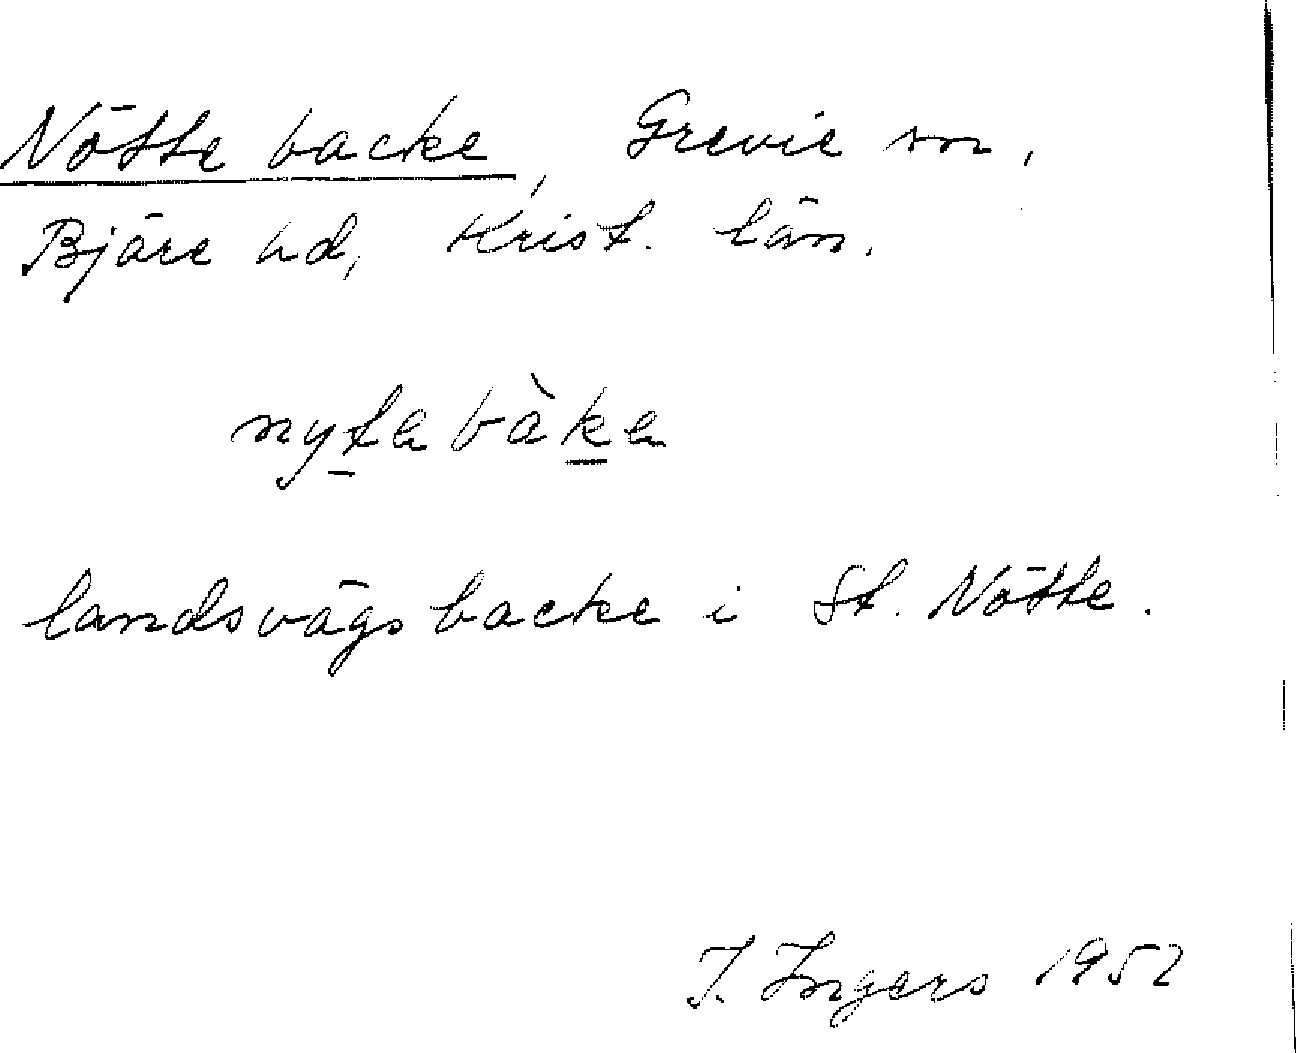 Nötte backe, Grevie sn,
Bjäre hd, Krist. län.
nyta bàka
landsvägsbacke i St. Nötte.
I. Ingers 1952